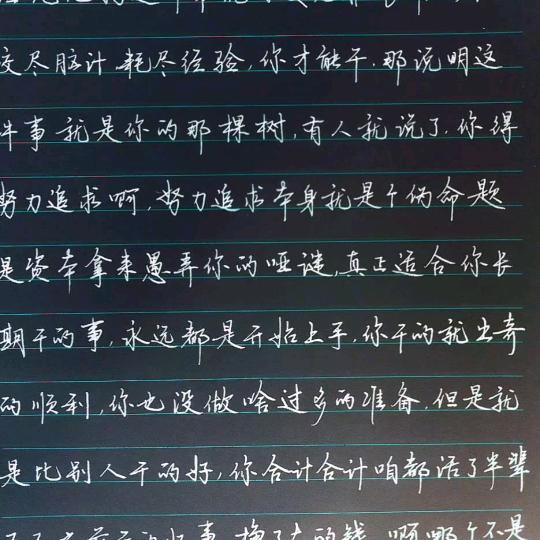 尽脑计耗尽经验，你才能干。那说明这
件事就是你的那棵树，有人就说了，你得
努力追求啊，努力追求本身就是个伪命题
是资本拿来愚弄你的哑谜，真正适合你长
期干的事，永远都是开始上手，你干的就出奇
的顺利，你也没做啥过多的准备，但是就
是比别人干的好，你合计合计咱都活了半辈